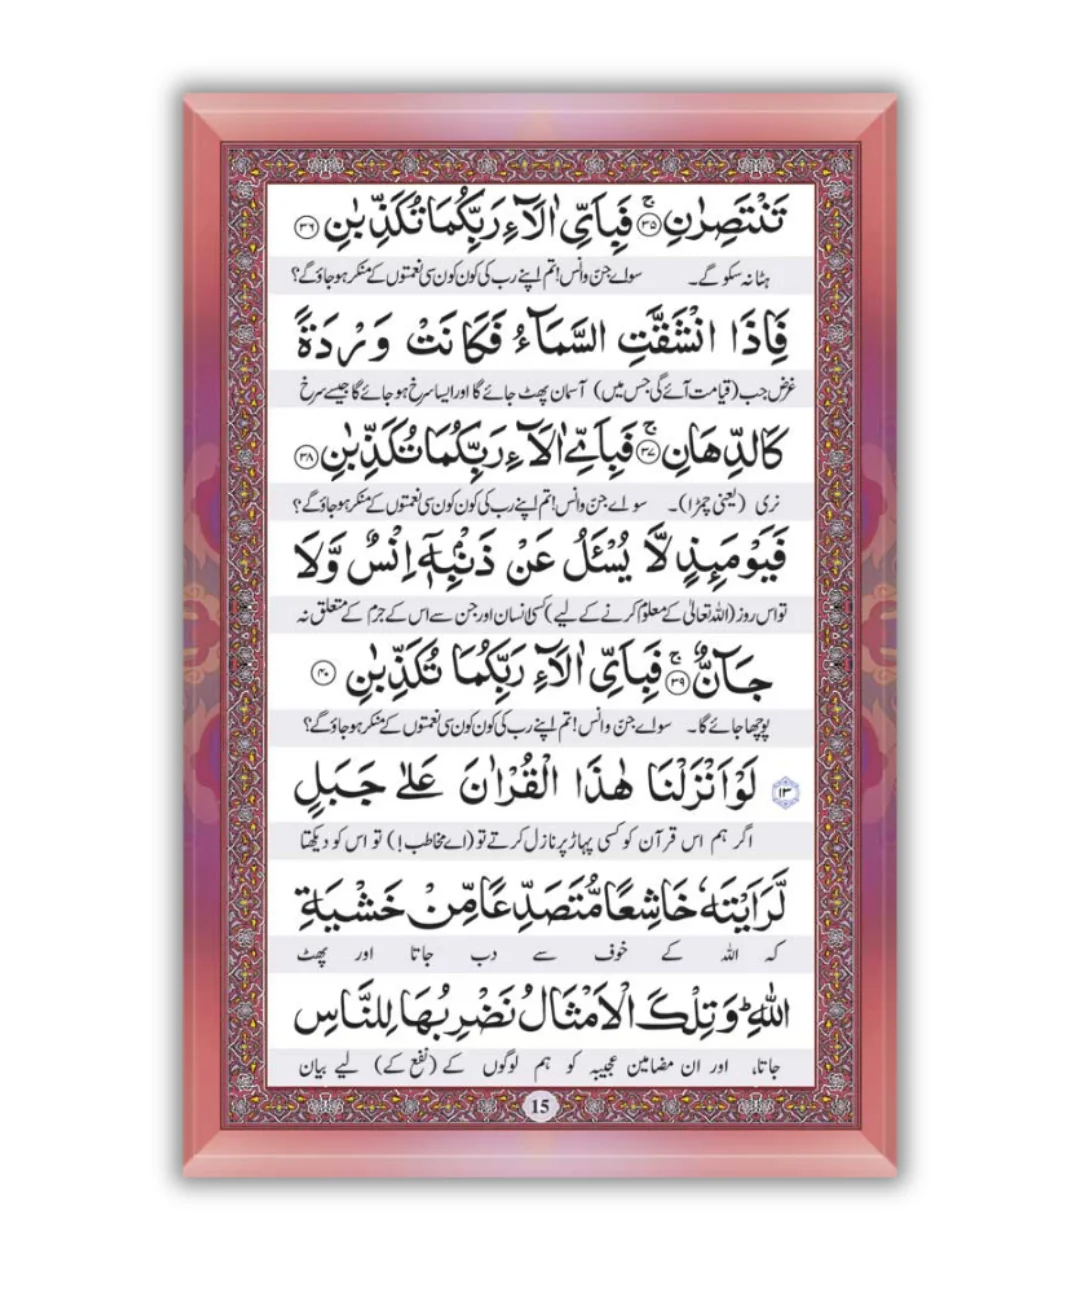 تَنْتَصِرٰنِ ۚ ﴿۳۵﴾ فَبِاَیِّ اٰلَآءِ رَبِّكُمَا تُكَذِّبٰنِ ﴿۳۶﴾
ہٹا نہ سکو گے۔ سو اے جن وانس! تم اپنے رب کی کون کون سی نعمتوں کے منکر ہو جاؤ گے؟
فَاِذَا انْشَقَّتِ السَّمَآءُ فَكَانَتْ وَرْدَةً
غرض جب (قیامت آئے گی جس میں) آسمان پھٹ جائے گا اور ایسا سرخ ہو جائے گا جیسے سرخ
كَالدِّهَانِ ۚ ﴿۳۷﴾ فَبِاَیِّ اٰلَآءِ رَبِّكُمَا تُكَذِّبٰنِ ﴿۳۸﴾
نری (یعنی چمڑا)۔ سو اے جن وانس! تم اپنے رب کی کون کون سی نعمتوں کے منکر ہو جاؤ گے؟
فَیَوْمَىِٕذٍ لَّا یُسْـَٔلُ عَنْ ذَنْۢبِهٖۤ اِنْسٌ وَّلَا
تو اس روز (اللہ تعالیٰ کے معلوم کرنے کے لیے) کسی انسان اور جن سے اس کے جرم کے متعلق نہ
جَآنٌّ ۚ ﴿۳۹﴾ فَبِاَیِّ اٰلَآءِ رَبِّكُمَا تُكَذِّبٰنِ ﴿۴۰﴾
پوچھا جائے گا۔ سو اے جن وانس! تم اپنے رب کی کون کون سی نعمتوں کے منکر ہو جاؤ گے؟
۱۳ لَوْ اَنْزَلْنَا هٰذَا الْقُرْاٰنَ عَلٰی جَبَلٍ
اگر ہم اس قرآن کو کسی پہاڑ پر نازل کرتے تو (اے مخاطب!) تو اس کو دیکھتا
لَّرَاَیْتَهٗ خَاشِعًا مُّتَصَدِّعًا مِّنْ خَشْیَةِ
کہ اللہ کے خوف سے دب جاتا اور پھٹ
اللّٰهِ ؕ وَ تِلْكَ الْاَمْثَالُ نَضْرِبُهَا لِلنَّاسِ
جاتا، اور ان مضامین عجیبہ کو ہم لوگوں کے (نفع کے) لیے بیان
15